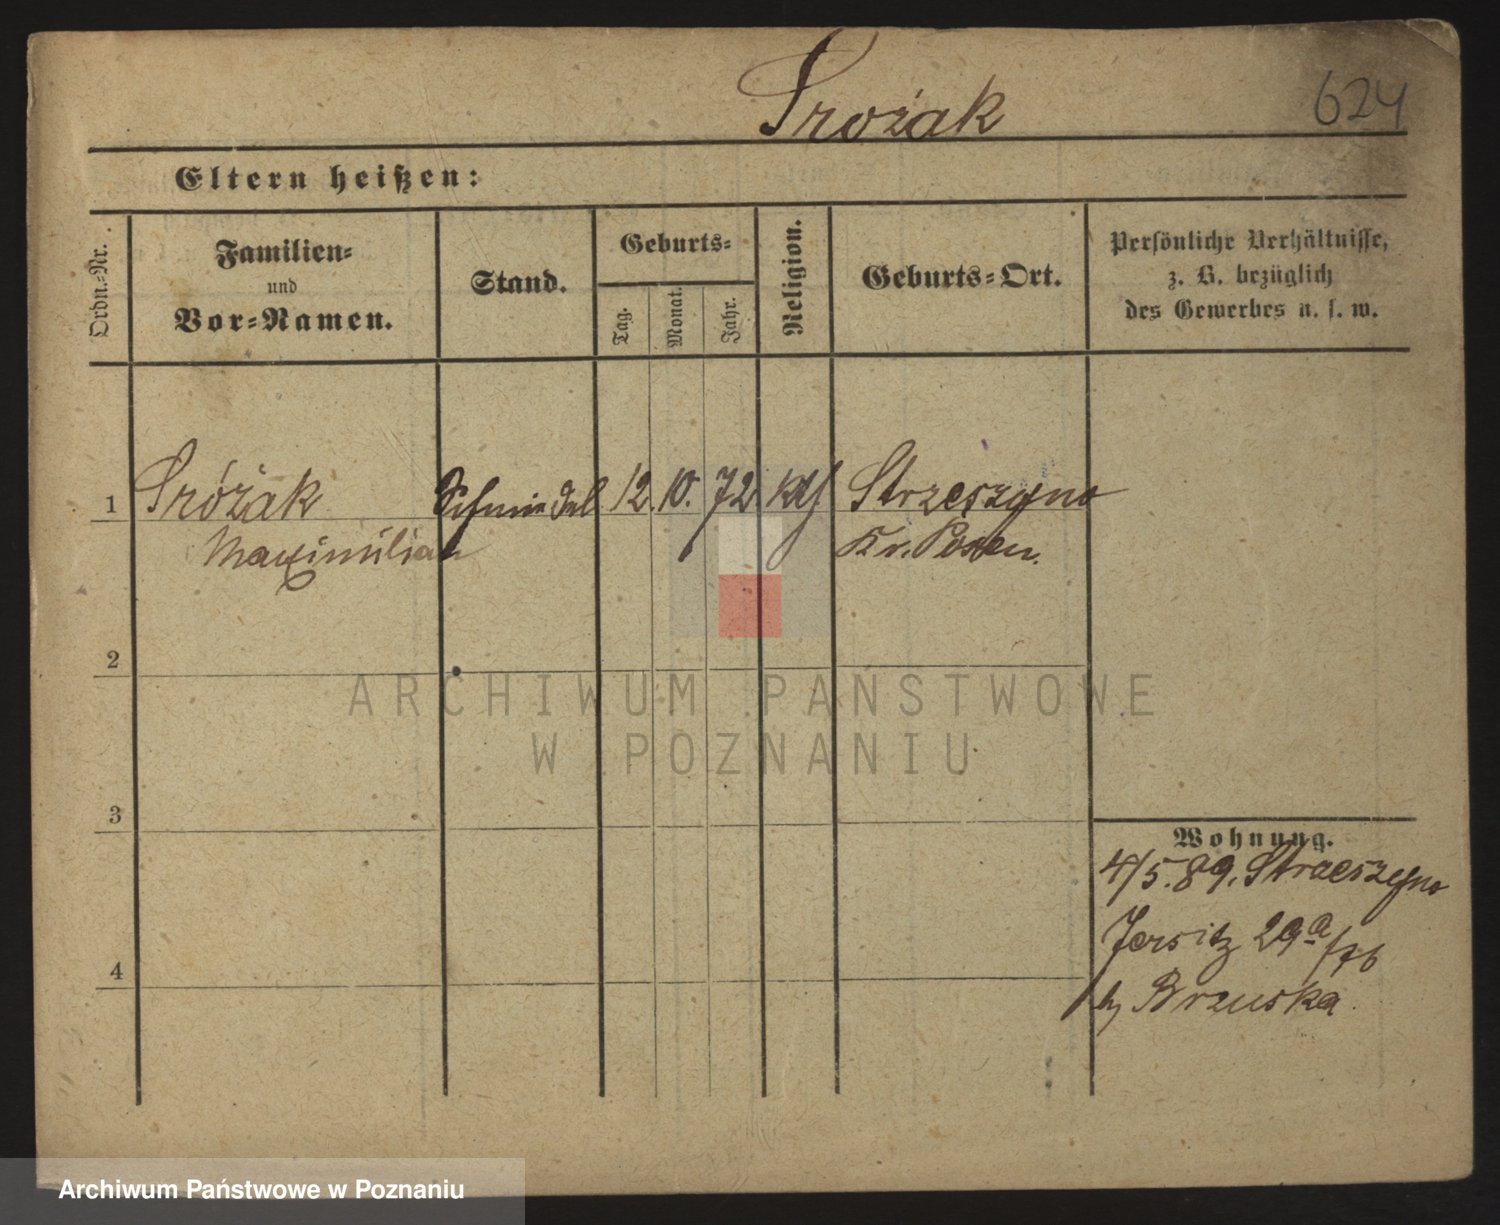 Srożak 624
Eltern heißen:
Ordn.-Nr.
Familien-
und
Vor-Namen.
Stand.
Geburts-
Tag.
Monat.
Jahr.
Religion.
Geburts-Ort.
Persönliche Verhältnisse,
z. B. bezüglich
des Gewerbes u. s. w.
1 Sróżak 12. 10. 72 kth Strzeszyno
Maximilian Kr. Posen.
2
3
4
Wohnung.
4/5. 89. Strzeszyno
Jersitz 29a
Bruska
ARCHIWUM PAŃSTWOWE
W POZNANIU
Archiwum Państwowe w Poznaniu